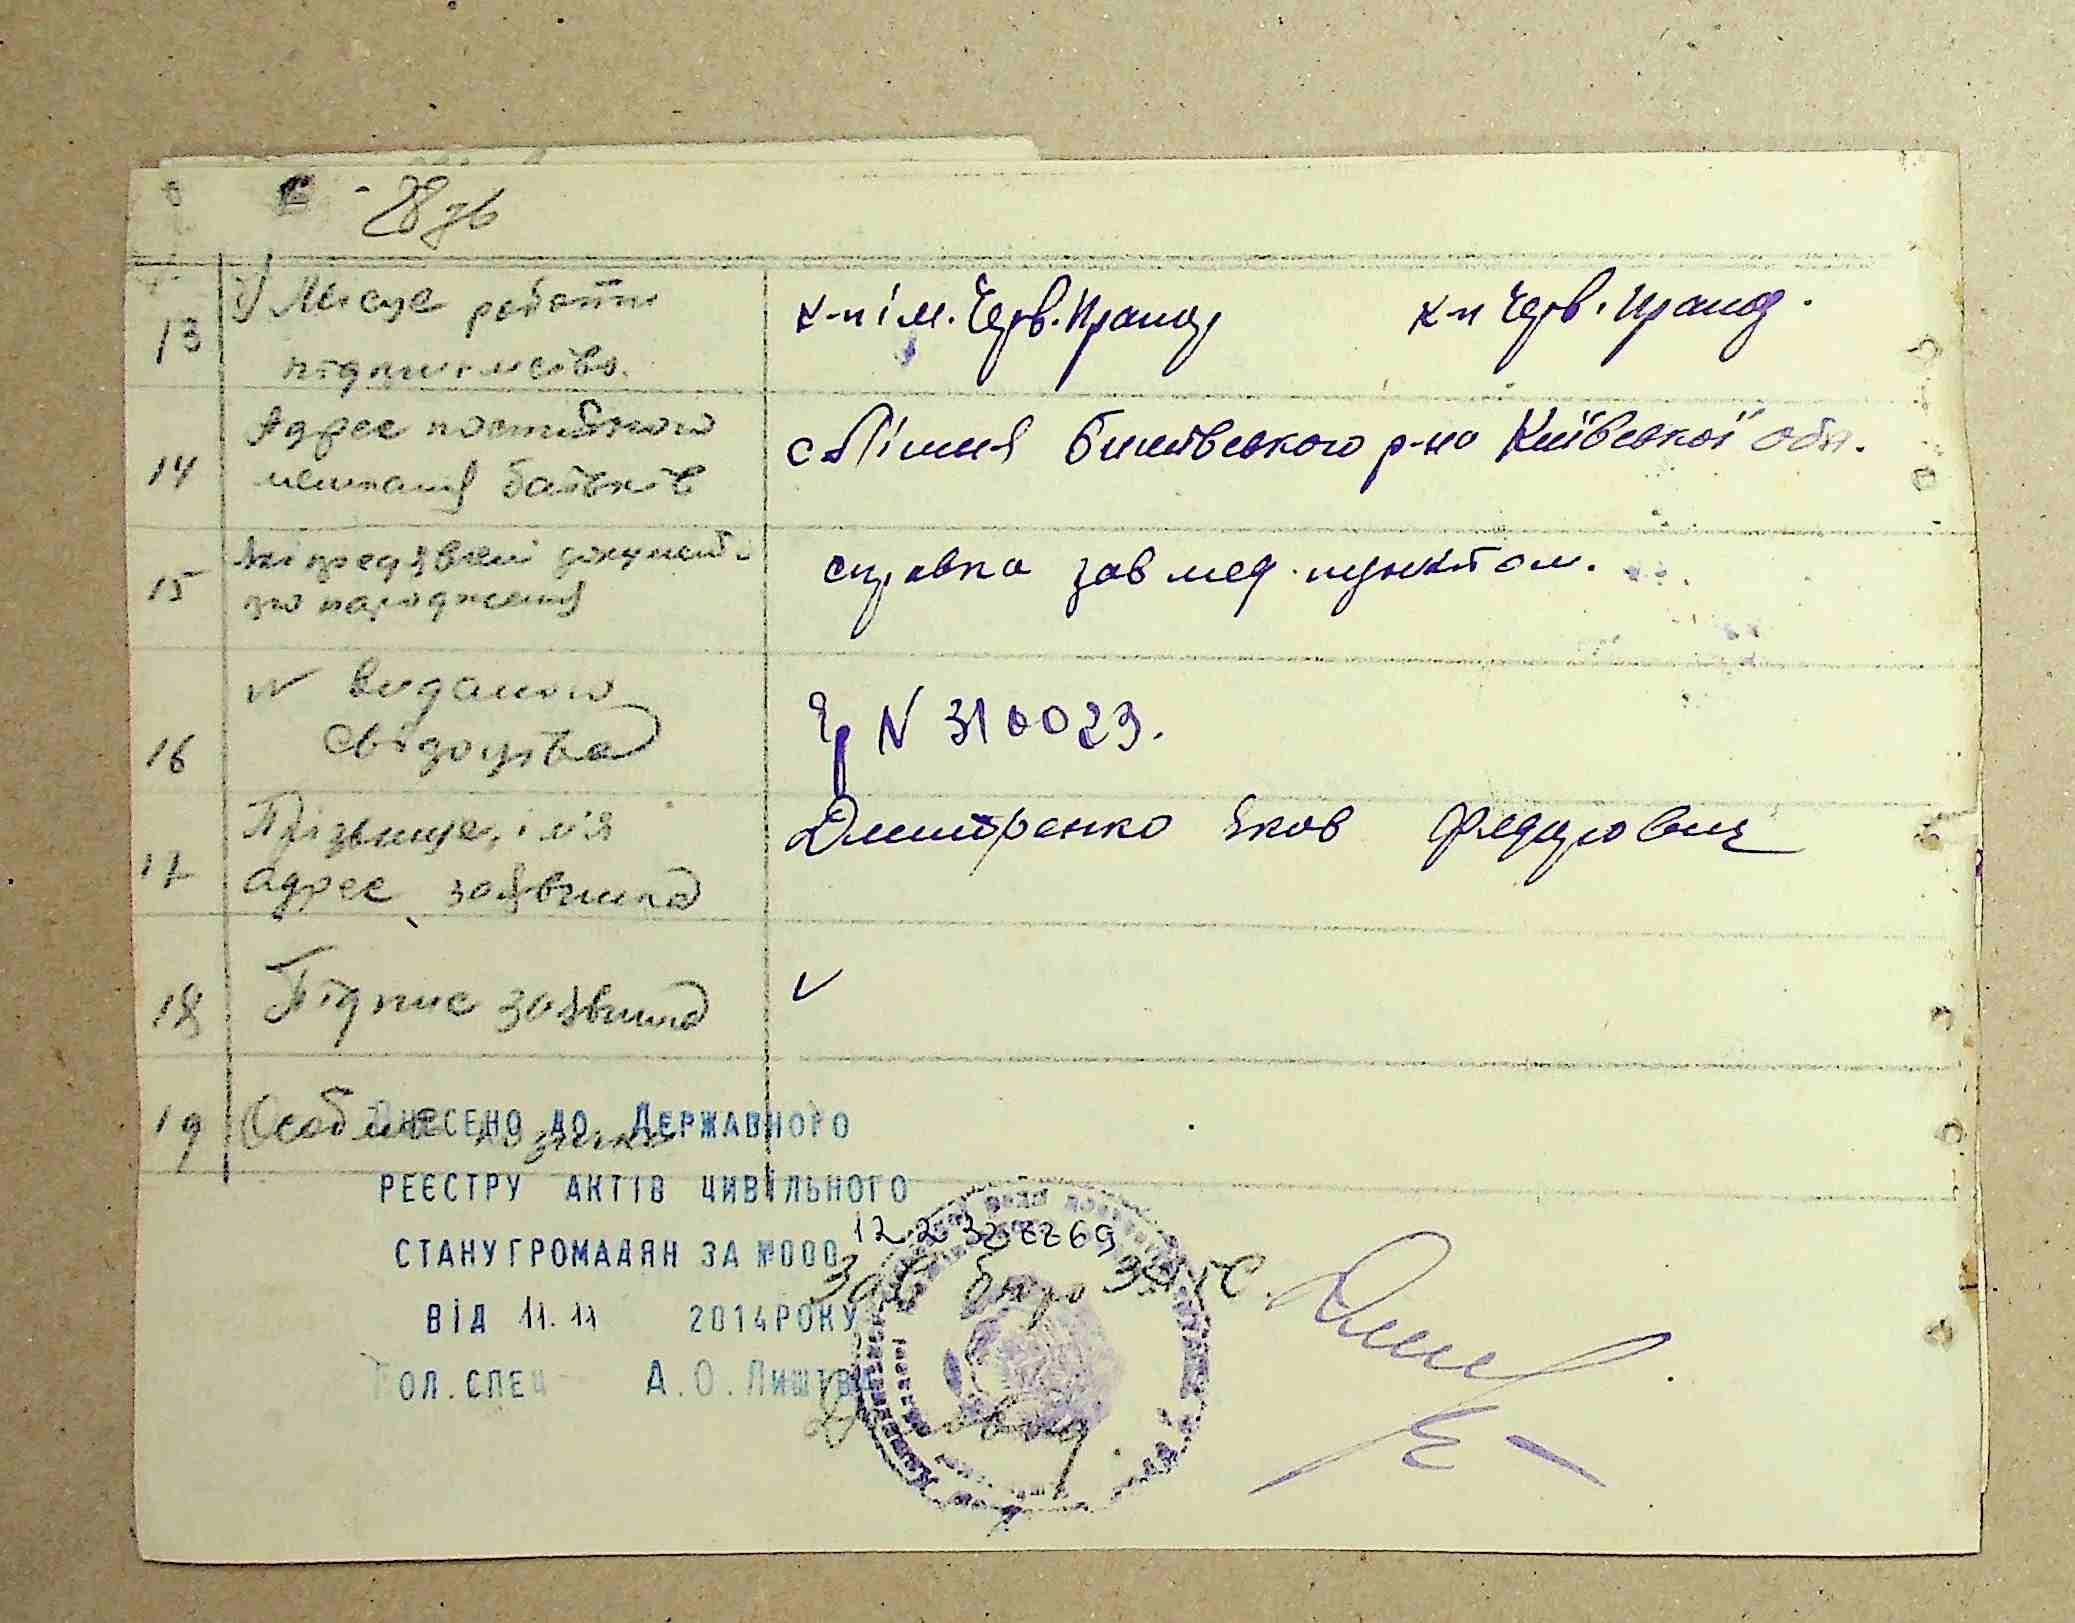 28 зв
13 Місце роботи
підприємство.
к-п ім. Черв. Прапор к-п Черв. Прапор.
14 Адрес постійного
мешкання батьків
с Лішня Бишівського р-но Київської обл.
15 Які предявлені документи
про народження
справка зав мед. пунктом.
16 N виданого
свідоцтва
N 310023.
17 Прізвище, ім'я
адрес заявника
Дмитренко Яков Федорович
18 Підпис заявника
V
19 Особливі
ВНЕСЕНО ДО ДЕРЖАВНОГО
РЕЄСТРУ АКТІВ ЦИВІЛЬНОГО
СТАНУ ГРОМАДЯН ЗА №000
ВІД 11.11 2014 РОКУ
ГОЛ. СПЕЦ А. О.
Зав бюро ЗАГС.